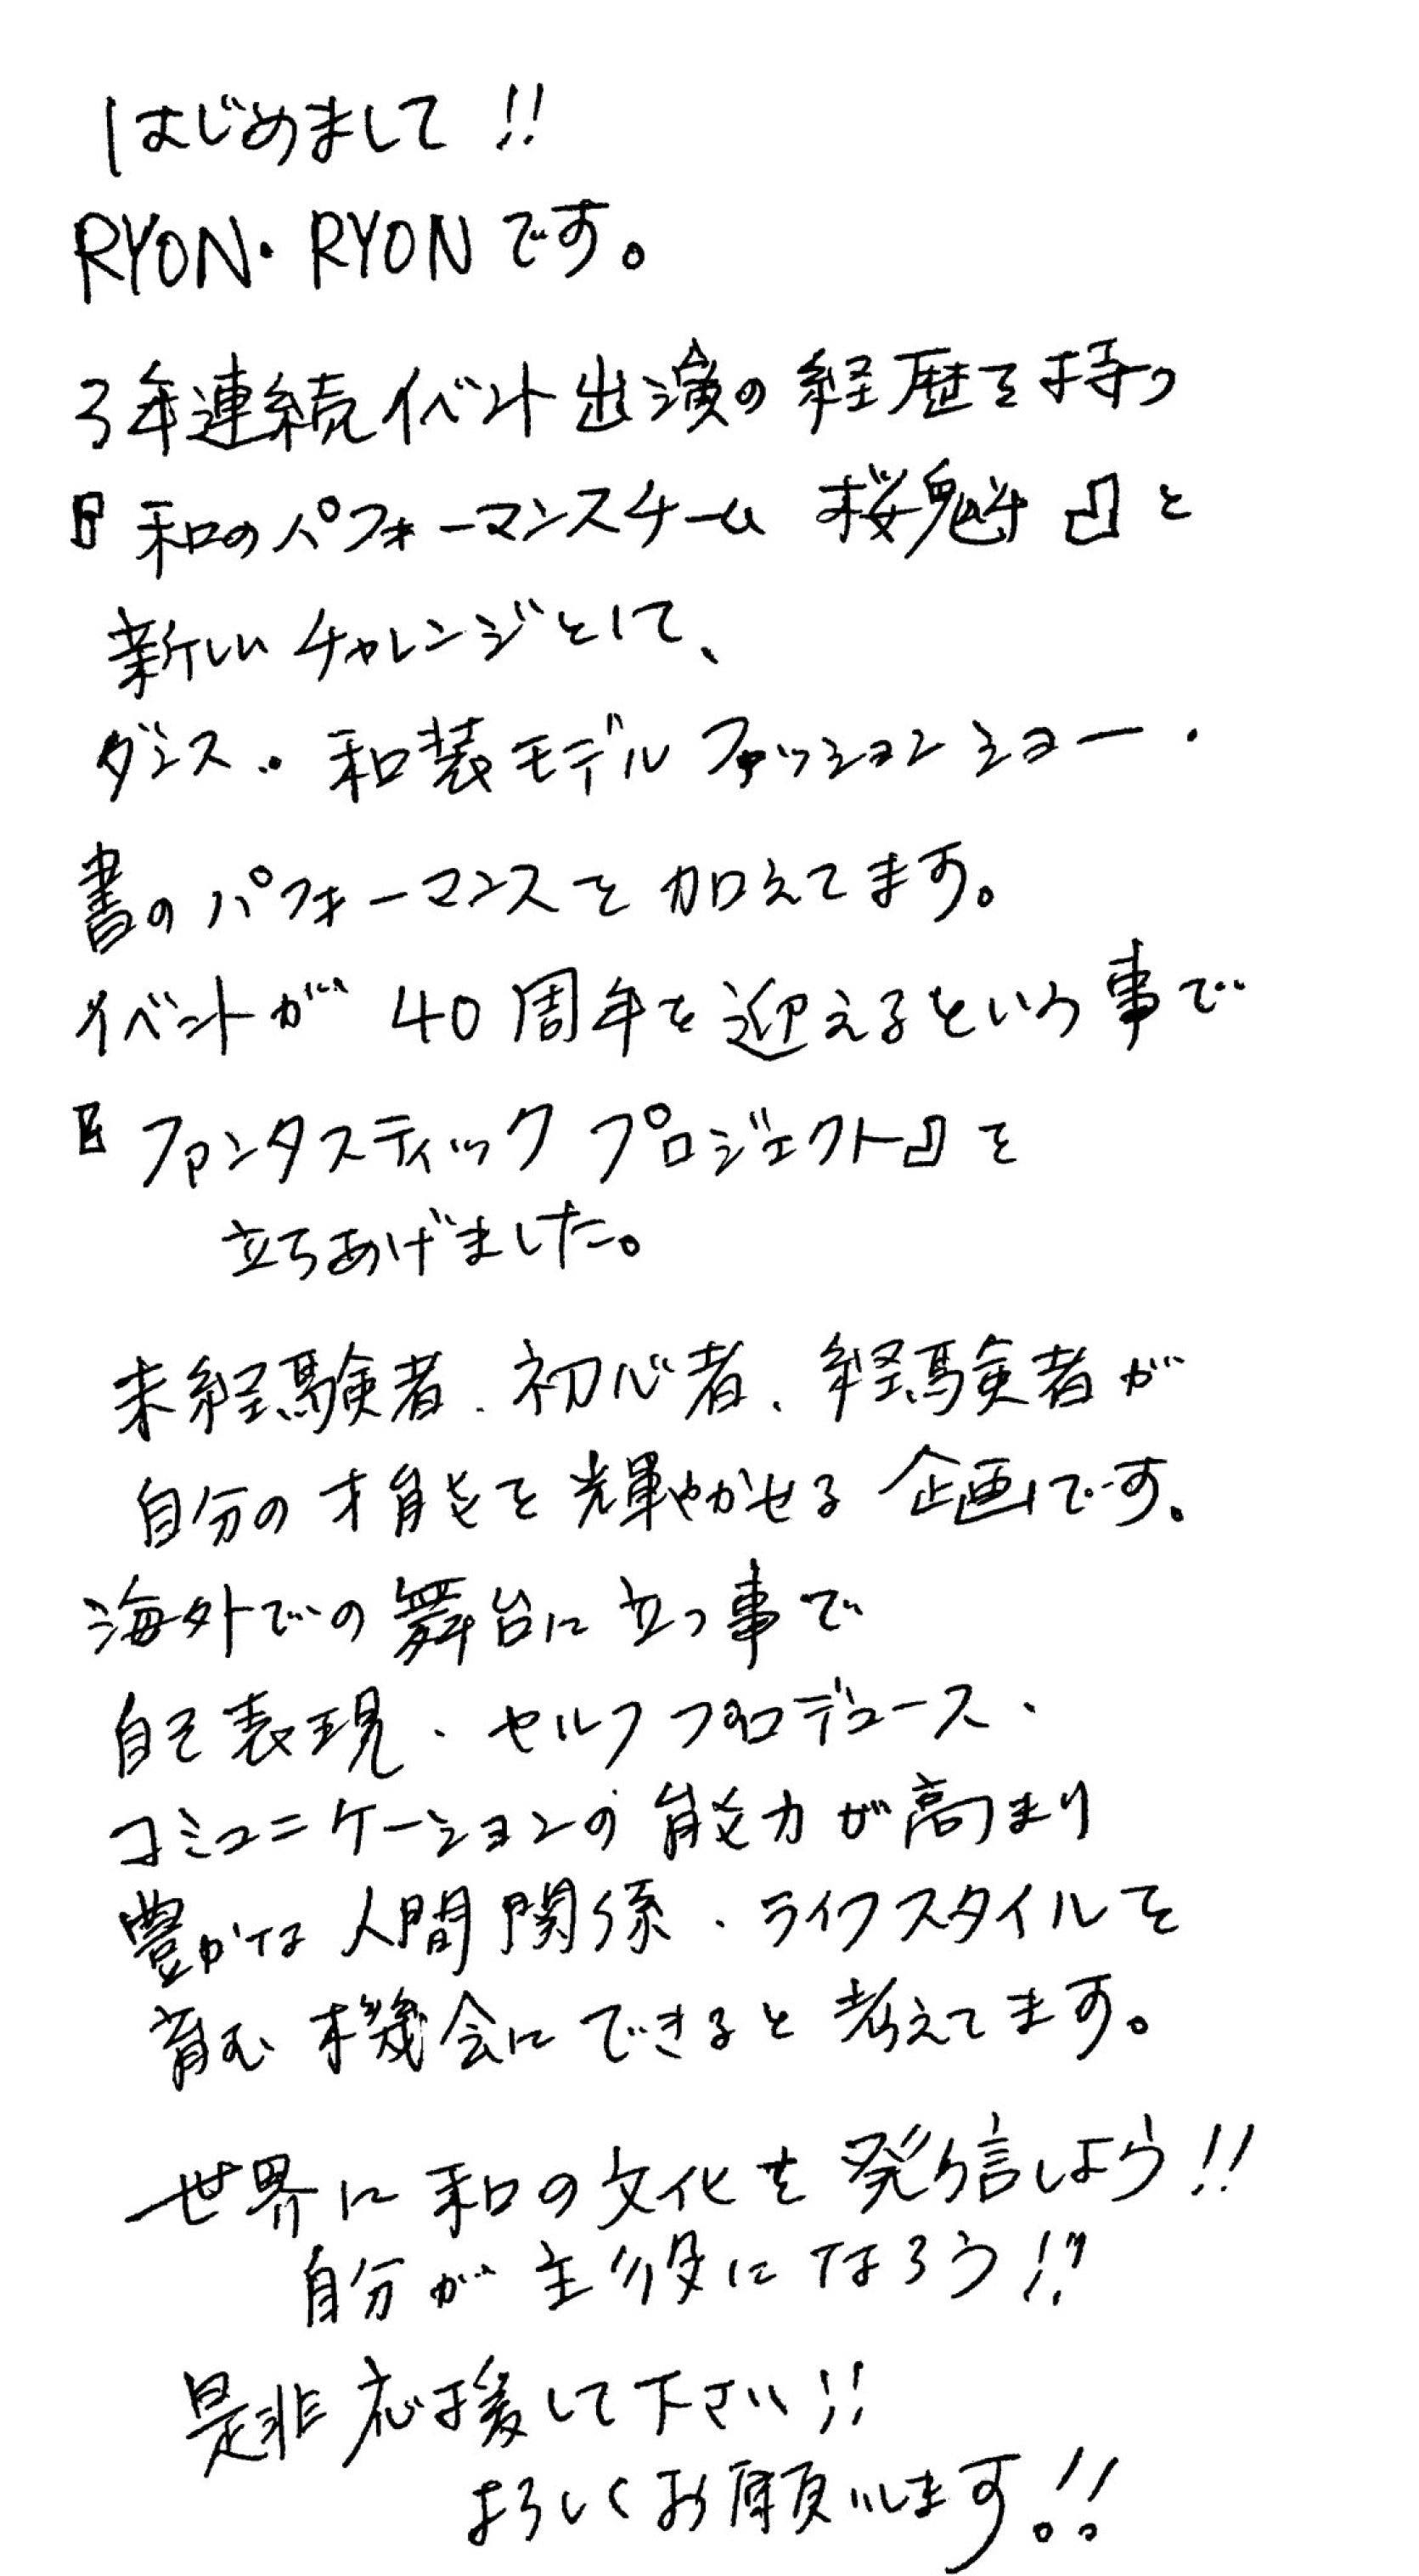 はじめまして!!
RYON・RYONです。
3年連続イベント出演の経歴を持つ
『和のパフォーマンスチーム 桜魁』と
新しいチャレンジとして、
ダンス・和装モデルファッションショー・
書のパフォーマンスを加えてます。
イベントが40周年を迎えるという事で
『ファンタスティックプロジェクト』を
立ちあげました。
未経験者、初心者、経験者が
自分の才能を輝やかせる企画です。
海外での舞台に立つ事で
自己表現・セルフプロデュース・
コミュニケーションの能力が高まり
豊かな人間関係・ライフスタイルを
育む機会にできると考えてます。
世界に和の文化を発信しよう!!
自分が主役になろう!!
是非応援して下さい!!
よろしくお願いします!!